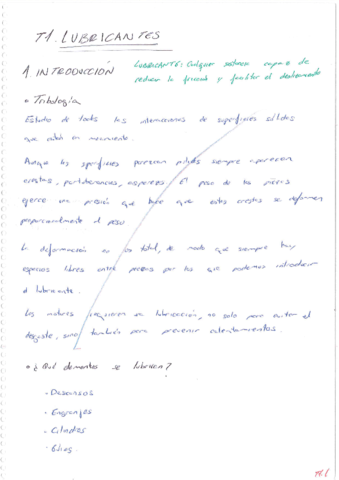 T1. LUBRICANTES
1. INTRODUCCIÓN
LUBRICANTE: Cualquier sustancia capaz de
reducir la fricción y facilitar el deslizamiento
• Tribología
Estudio de todas las interacciones de superficies sólidas
que están en movimiento.
Aunque las superficies parezcan pulidas siempre aparecen
crestas, protuberancias, asperezas. El peso de las piezas
ejerce una presión que hace que estas crestas se deformen
proporcionalmente al peso
La deformación no es total, de modo que siempre hay
espacios libres entre piezas por los que podemos introducir
el lubricante.
Los motores requieren en lubricación, no solo para evitar el
desgaste, sino también para prevenir calentamientos.
• ¿Qué elementos se lubrican?
- Descansos
- Engranajes
- Cilindros